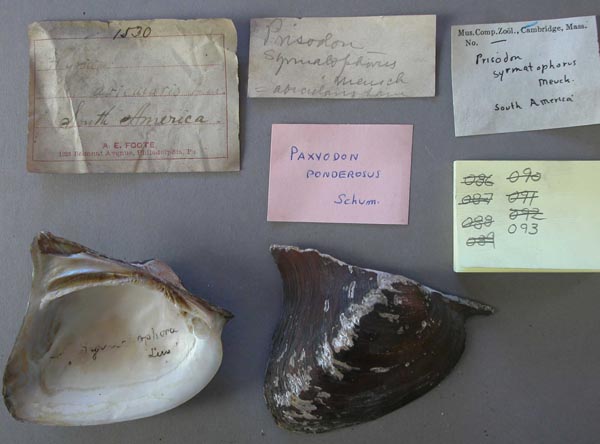 1530
South America.
A. E. FOOTE
Belmont Avenue, Philadelphia, Pa.
Prisodon
syrmatophorus
Meusch
Mus. Comp. Zoöl., Cambridge, Mass.
No. —
Prisodon
syrmatophorus
Meuck.
South America
PAXYODON
PONDEROSUS
Schum.
086 090
087 091
088 092
089 093